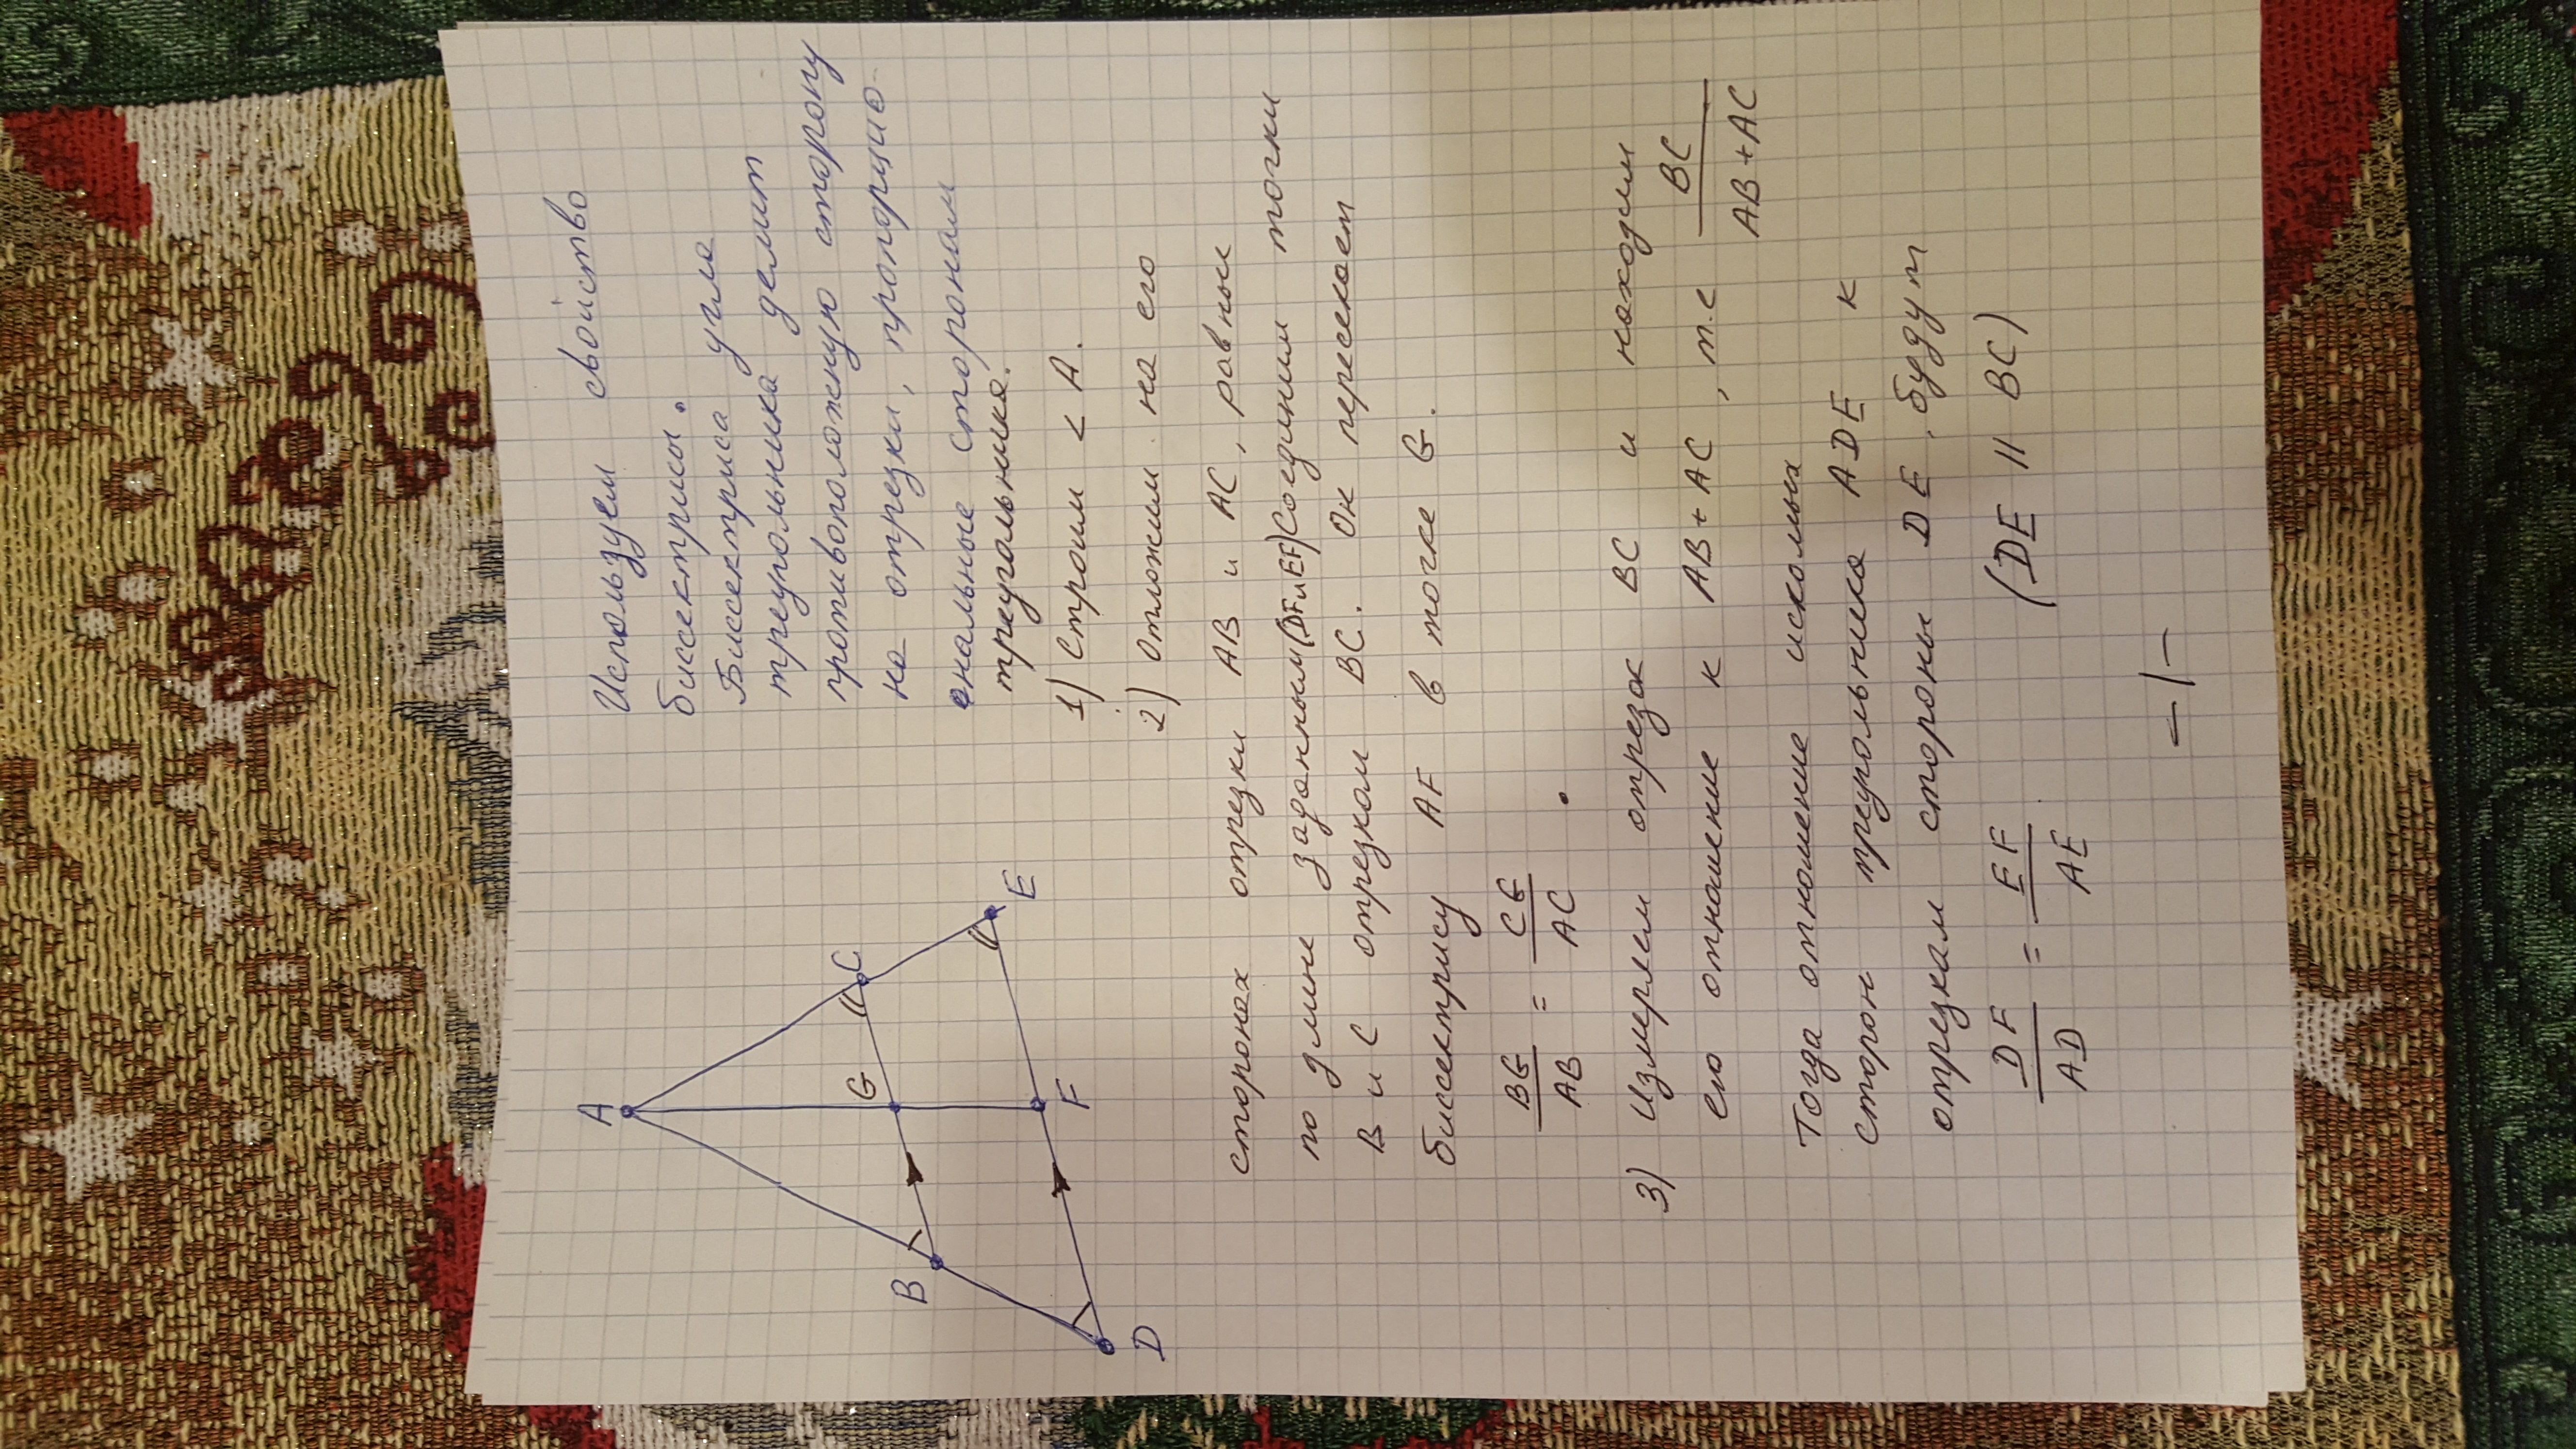 A
B
G
C
D
F
E
Используем свойство
биссектрисы.
Биссектриса угла
треугольника делит
противоположную сторону
на отрезки, пропорцио-
енальные сторонам
треугальника.
1) Строим < А.
2) Отложим на его
сторонах отрезки AB и AC, равные
по длине заданным (DF и EF) Соединим точки
B и C отрезком BC. Он пересекает
биссектрису AF в точке G.
BG/AB = CG/AC.
3) Измеряем отрезок BC и находим
его отношение к AB + AC, т.е BC/AB + AC
Тогда отношение искомых
сторон треугольника ADE к
отрезкам стороны DE, будут
DF/AD = EF/AE (DE || BC)
– 1 –